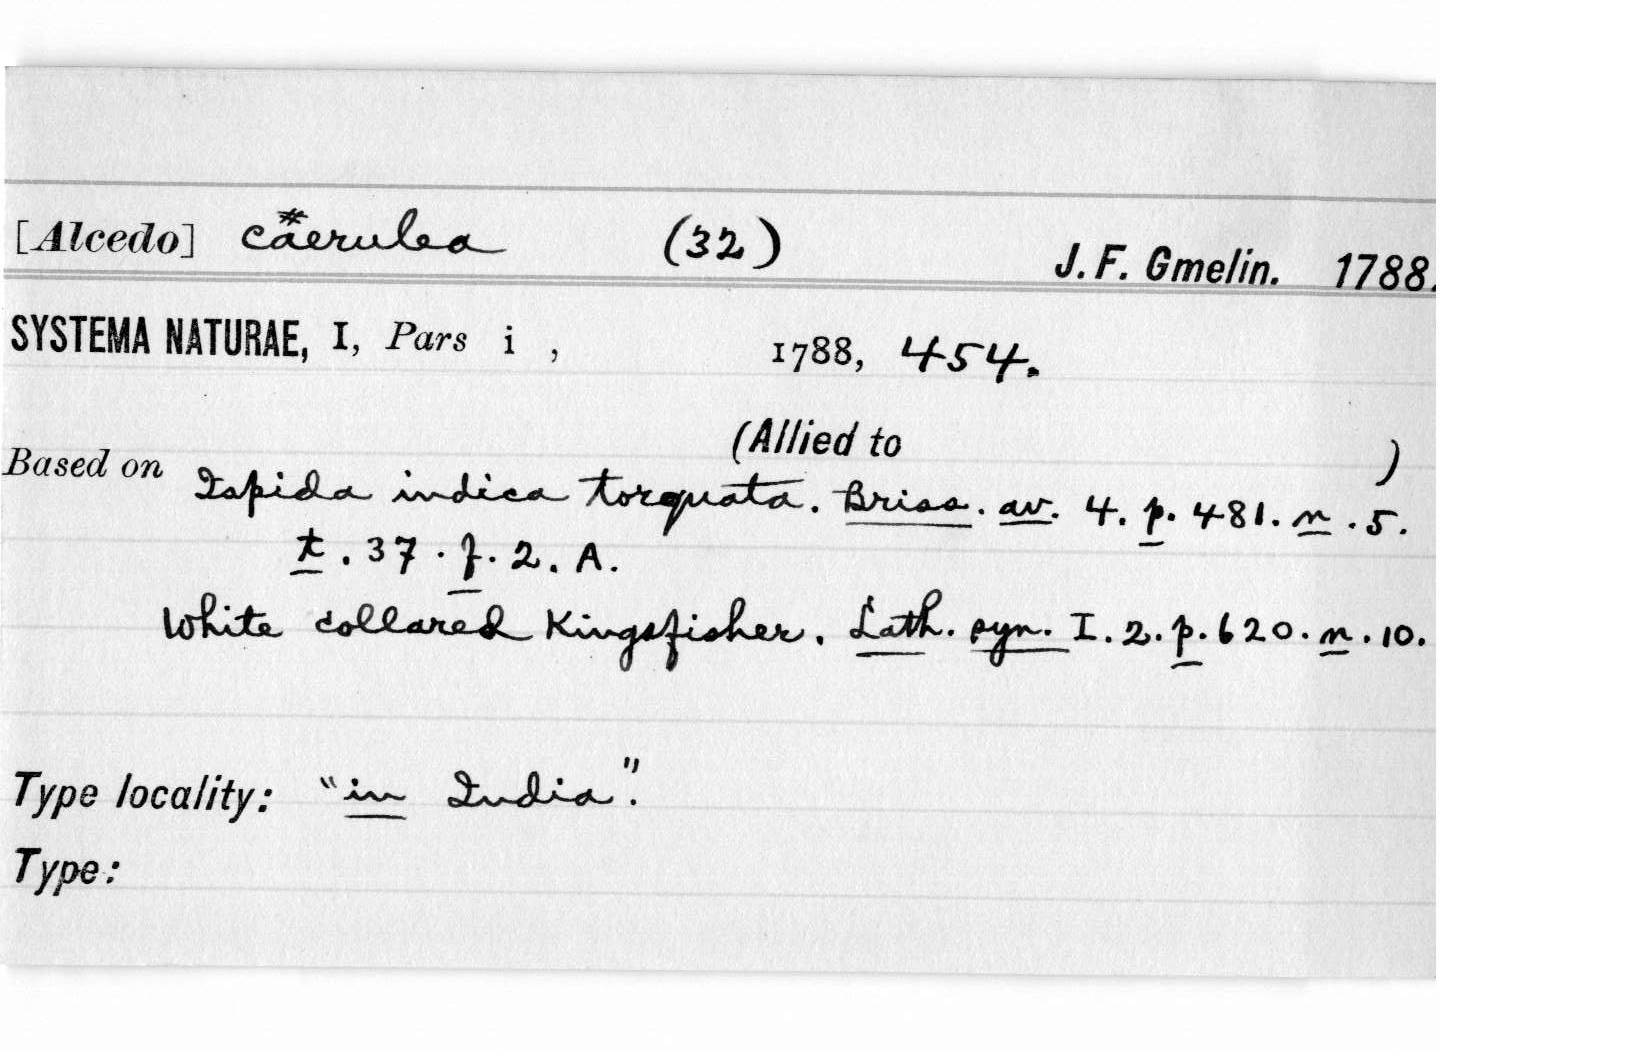 [Alcedo] caerulea (32) J. F. Gmelin. 1788.
SYSTEMA NATURAE, I, Pars i , 1788, 454.
(Allied to )
Based on Ispida indica torquata. Briss. av. 4. p. 481. n. 5.
t. 37. f. 2. A.
White collared Kingsfisher. Lath. syn. I. 2. p. 620. n. 10.
Type locality: "in India".
Type: